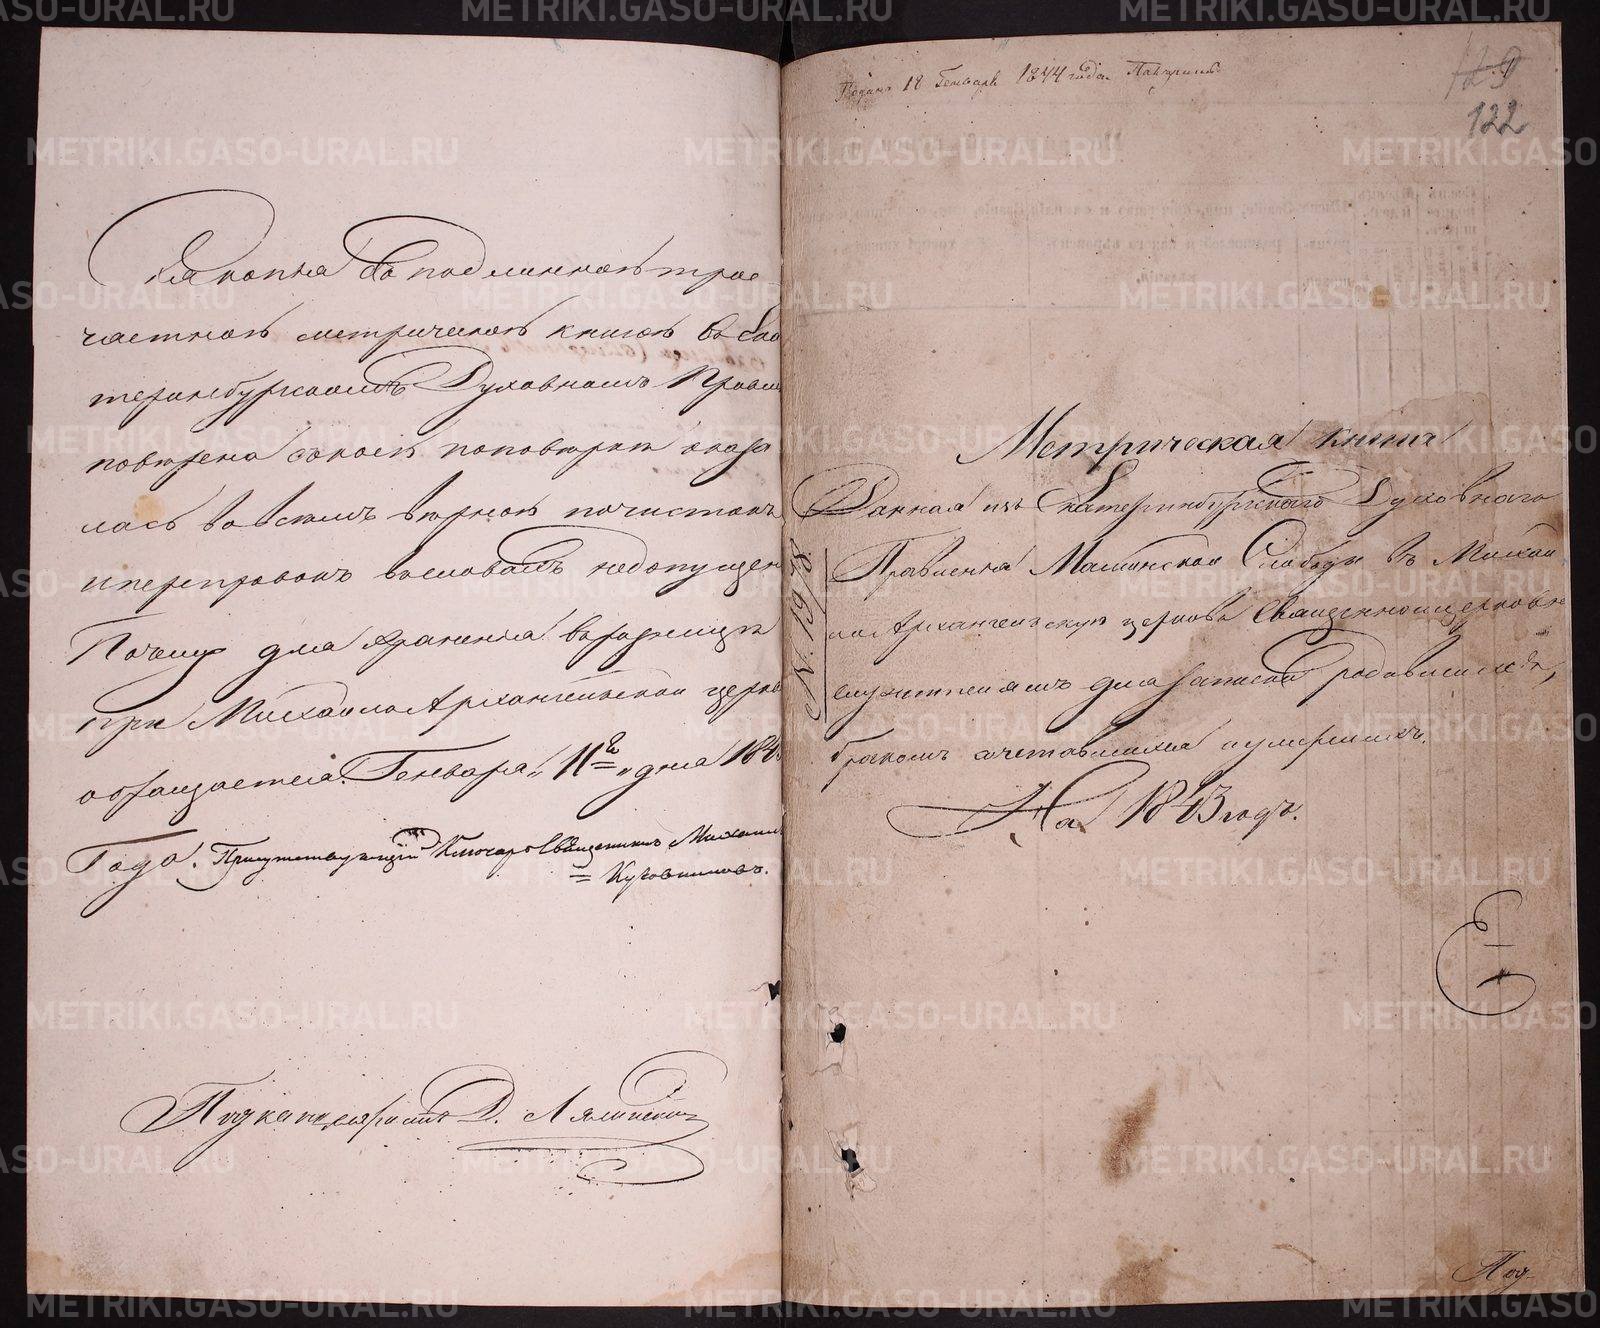 Сія копія съ подлинною трое
частною метрическою книгою въ Ека
теринбургскомъ Духовномъ Правле
повѣрена с коею по повѣркѣ оказа
лась во всемъ вѣрною почистокъ
и переправокъ въ словахъ недопущен
Почему для храненія въ ризницѣ
при Михаило Архангельской церкви
обращается. Генваря „11го„ дня 184
Года. Присутствующій Ключарь Священникъ Михаилъ
Кутовниковъ.
Подканцеляристъ Д. Лялинскій
Подана 18 Генваря 1844 года
129
122
Метрическая книга
Данная изъ Екатеринбургскаго Духовнаго
Правленія Маминской Слободы въ Михаи
ло Архангельскую церковь Священноцерковно
служителямъ для записки родившихся,
бракомъ сочетавшихся и умершихъ.
На 1843 годъ.
N. 1978.
Под-
METRIKI.GASO-URAL.RU